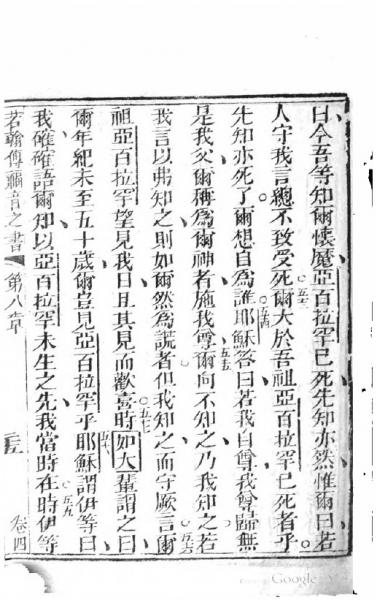 曰今吾等知爾懷魔亞百拉罕已死先知亦然惟爾曰若
人守我言總不致受死爾大於吾祖亞百拉罕已死者乎
先知亦死了爾想自為誰耶穌答曰若我自尊我尊歸無
是我父爾稱為爾神者施我尊爾向不知之乃我知之若
我言以弗知之則如爾然為謊者但我知之而守厥言爾
祖亞百拉罕望見我日且其見而歡喜時如大輩謂之曰
爾年紀未至五十歲爾豈見亞百拉罕乎耶穌謂伊等曰
我確確語爾知以亞百拉罕未生之先我當時在時伊等
若翰傳福音之書 第八章 卷四
Google